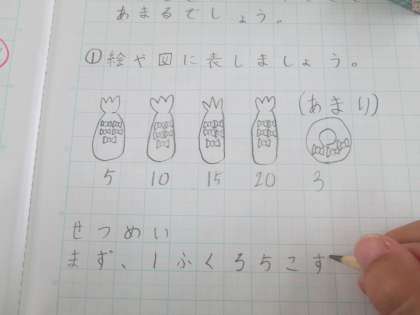 あまるでしょう。
①絵や図に表しましょう。
(あまり)
5 10 15 20 3
せつめい
まず、1ふくろ5こす